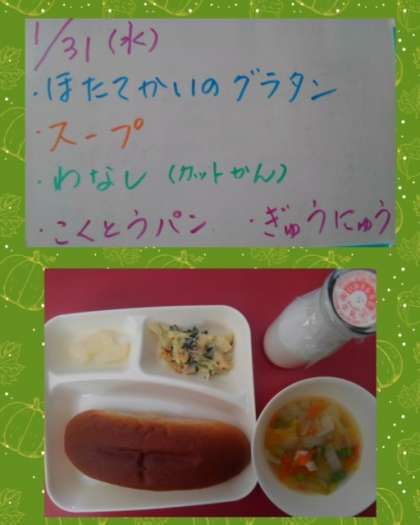 1/31(水)
・ほたてかいのグラタン
・スープ
・わなし(カットかん)
・こくとうパン ・ぎゅうにゅう